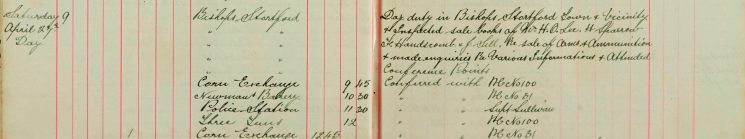 Saturday 9 Bishops Stortford Day duty in Bishops Stortford Town & Vicinity
April 29th " & Inspected sale books of Mr H. O. Lee H Sparrow
Day " F. Handscomb & J. Sell. Re sale of Arms & Ammunition
" & made enquiries Re Various Informations & Attended
" Conference Points
Corn Exchange 9 45 Conferred with PC No 100
Newman's Bakery 10 30 " PC No 31
Police Station 11 20 " Supt Sullivan
Three Tuns 12 " PC No 100
1 Corn Exchange 12 45 " PC No 31